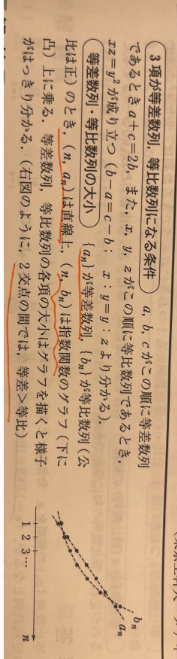 3項が等差数列，等比数列になる条件 a, b, c がこの順に等差数列
であるとき a+c=2b，また，x, y, z がこの順に等比数列であるとき，
xz=y² が成り立つ（b−a=c−b； x：y=y：z より分かる）．
等差数列・等比数列の大小 {aₙ} が等差数列，{bₙ} が等比数列（公
比は正）のとき，(n, aₙ) は直線上，(n, bₙ) は指数関数のグラフ（下に
凸）上に乗る．等差数列，等比数列の各項の大小はグラフを描くと様子
がはっきり分かる．（右図のように，2交点の間では，等差＞等比）
bₙ
aₙ
1 2 3 … n